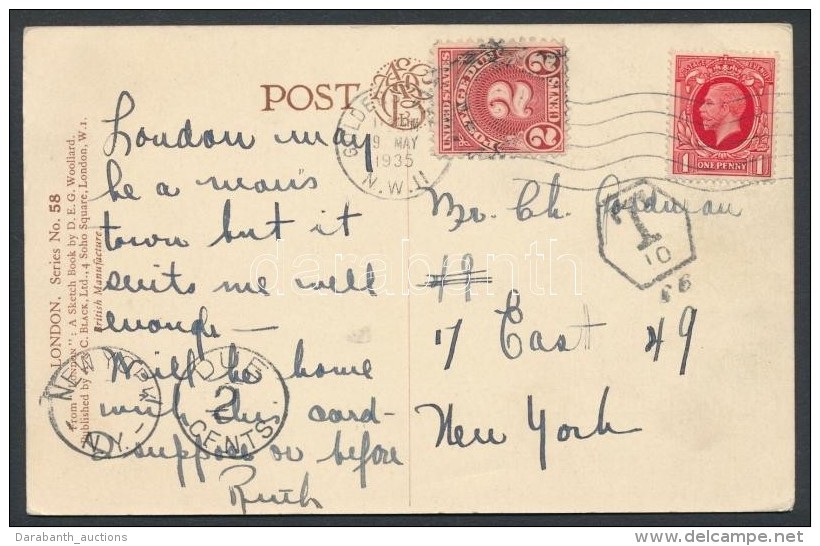 POST
GOLDE
9 MAY
1935
N.W.11
UNITED STATES
POSTAGE DUE
2
POSTAGE REVENUE
1 ONE PENNY 1
London may
be a man's
town but it
suits me well
enough —
Will be home
with this card-
I suppose or before
Ruth
Mr. Ch.
49
17 East 49
New York
T
10
LONDON. Series No. 58
From "LONDON": A Sketch Book by D. E. G. Woollard.
Published by A. & C. BLACK, Ltd., 4 Soho Square, London, W.1.
British Manufacture
NEW YORK
N.Y.
DUE
2
CENTS
darabanth
Darabanth_auctions
www.delcampe.net